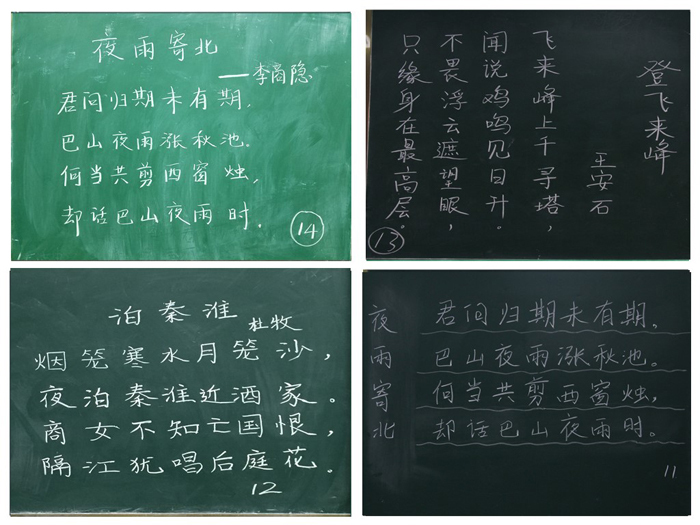 夜雨寄北
——李商隐
君问归期未有期，
巴山夜雨涨秋池。
何当共剪西窗烛，
却话巴山夜雨时。
14
登飞来峰
王安石
飞来峰上千寻塔，
闻说鸡鸣见日升。
不畏浮云遮望眼，
只缘身在最高层。
13
泊秦淮
杜牧
烟笼寒水月笼沙，
夜泊秦淮近酒家。
商女不知亡国恨，
隔江犹唱后庭花。
12
夜雨寄北
君问归期未有期。
巴山夜雨涨秋池。
何当共剪西窗烛，
却话巴山夜雨时。
11